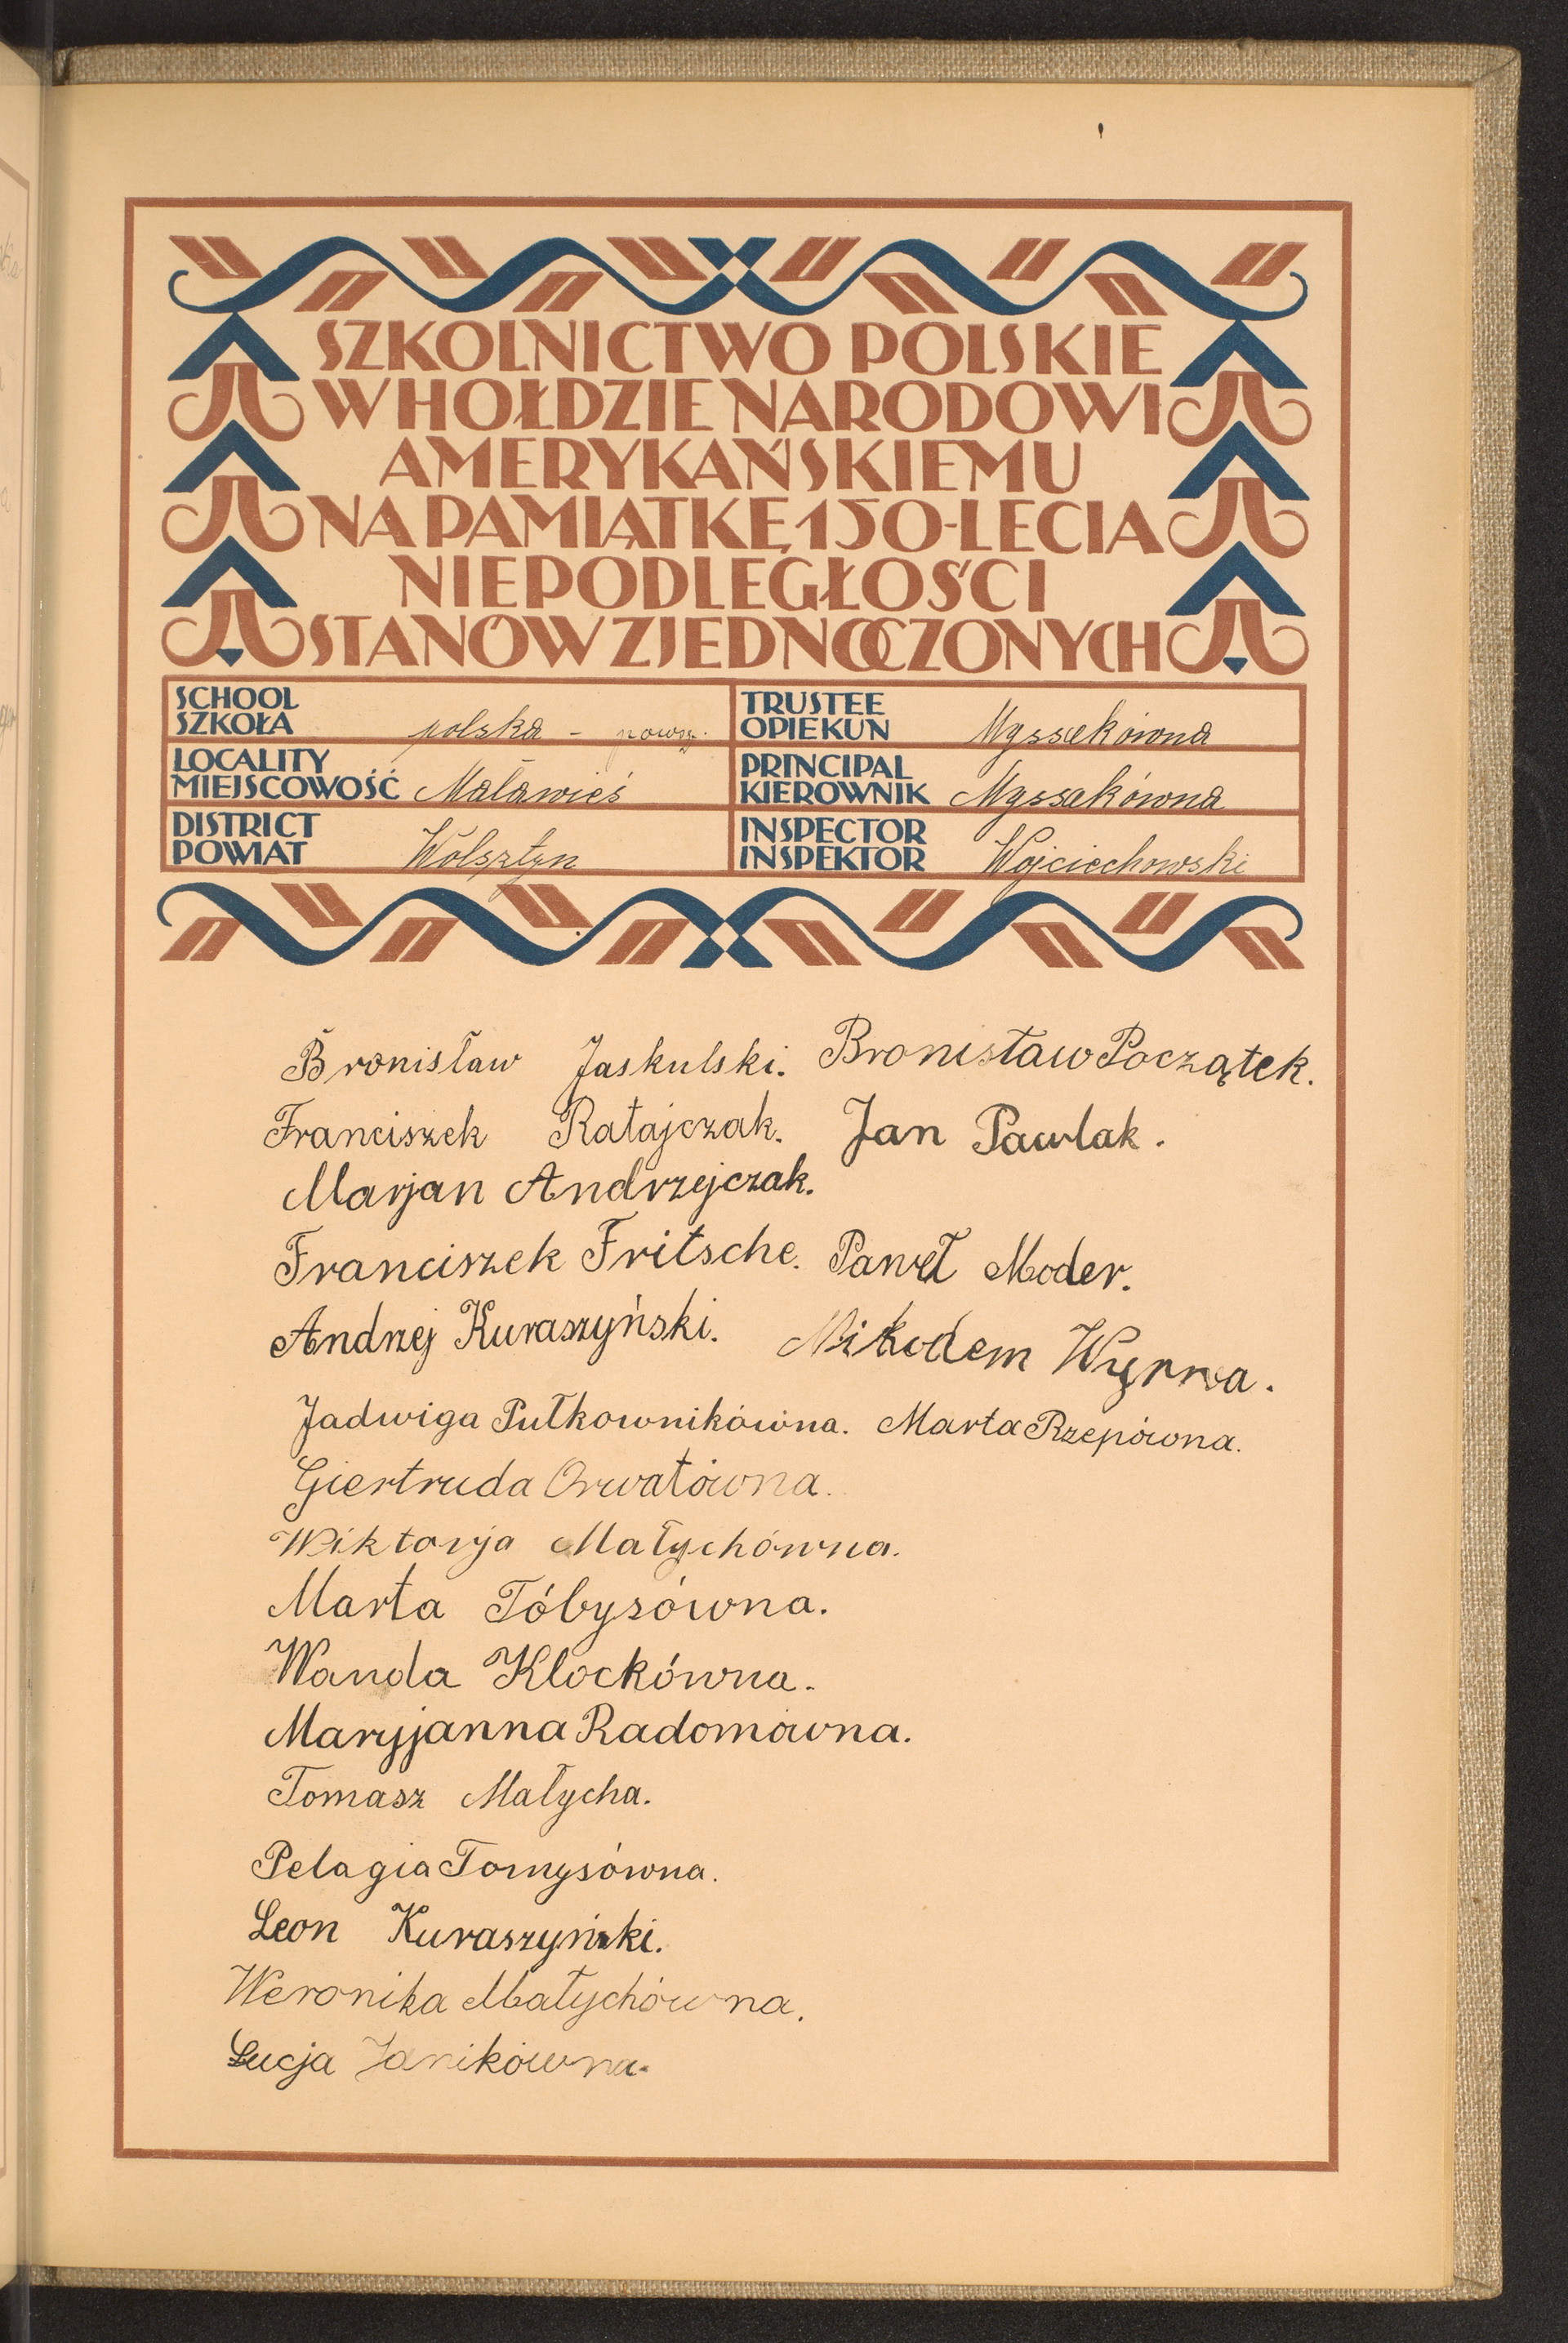 SZKOLNICTWO POLSKIE
W HOŁDZIE NARODOWI
AMERYKAŃSKIEMU
NA PAMIĄTKĘ 150-LECIA
NIEPODLEGŁOŚCI
STANÓW ZJEDNOCZONYCH
SCHOOL
SZKOŁA polska - powsz.
TRUSTEE
OPIEKUN Myssakówna
LOCALITY
MIEJSCOWOŚĆ Maławieś
PRINCIPAL
KIEROWNIK Myssakówna
DISTRICT
POWIAT Wolsztyn
INSPECTOR
INSPEKTOR Wojciechowski
Bronisław Jaskulski. Bronisław Początek.
Franciszek Ratajczak. Jan Pawlak.
Marjan Andrzejczak.
Franciszek Fritsche. Paweł Moder.
Andrzej Kuraszyński. Nikodem Wyrwa.
Jadwiga Pułkownikówna. Marta Rzepówna.
Giertruda Orwatówna.
Wiktorja Małychówna.
Marta Tóbysówna.
Wanda Klockówna.
Maryjanna Radomówna.
Tomasz Małycha.
Pelagia Tomysówna.
Leon Kuraszyński.
Weronika Małychówna.
Łucja Janikówna.